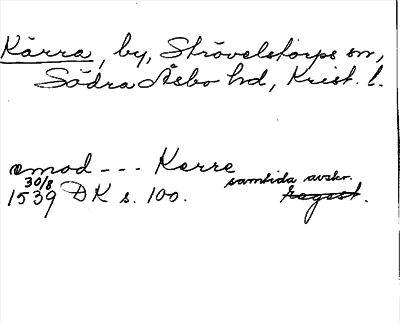 Kärra, by, Strövelstorps sn,
Södra Åsbo hd, Krist. l.
emod --- Kerre
30/8 samtida avskr.
1539 DK s. 100. regest.